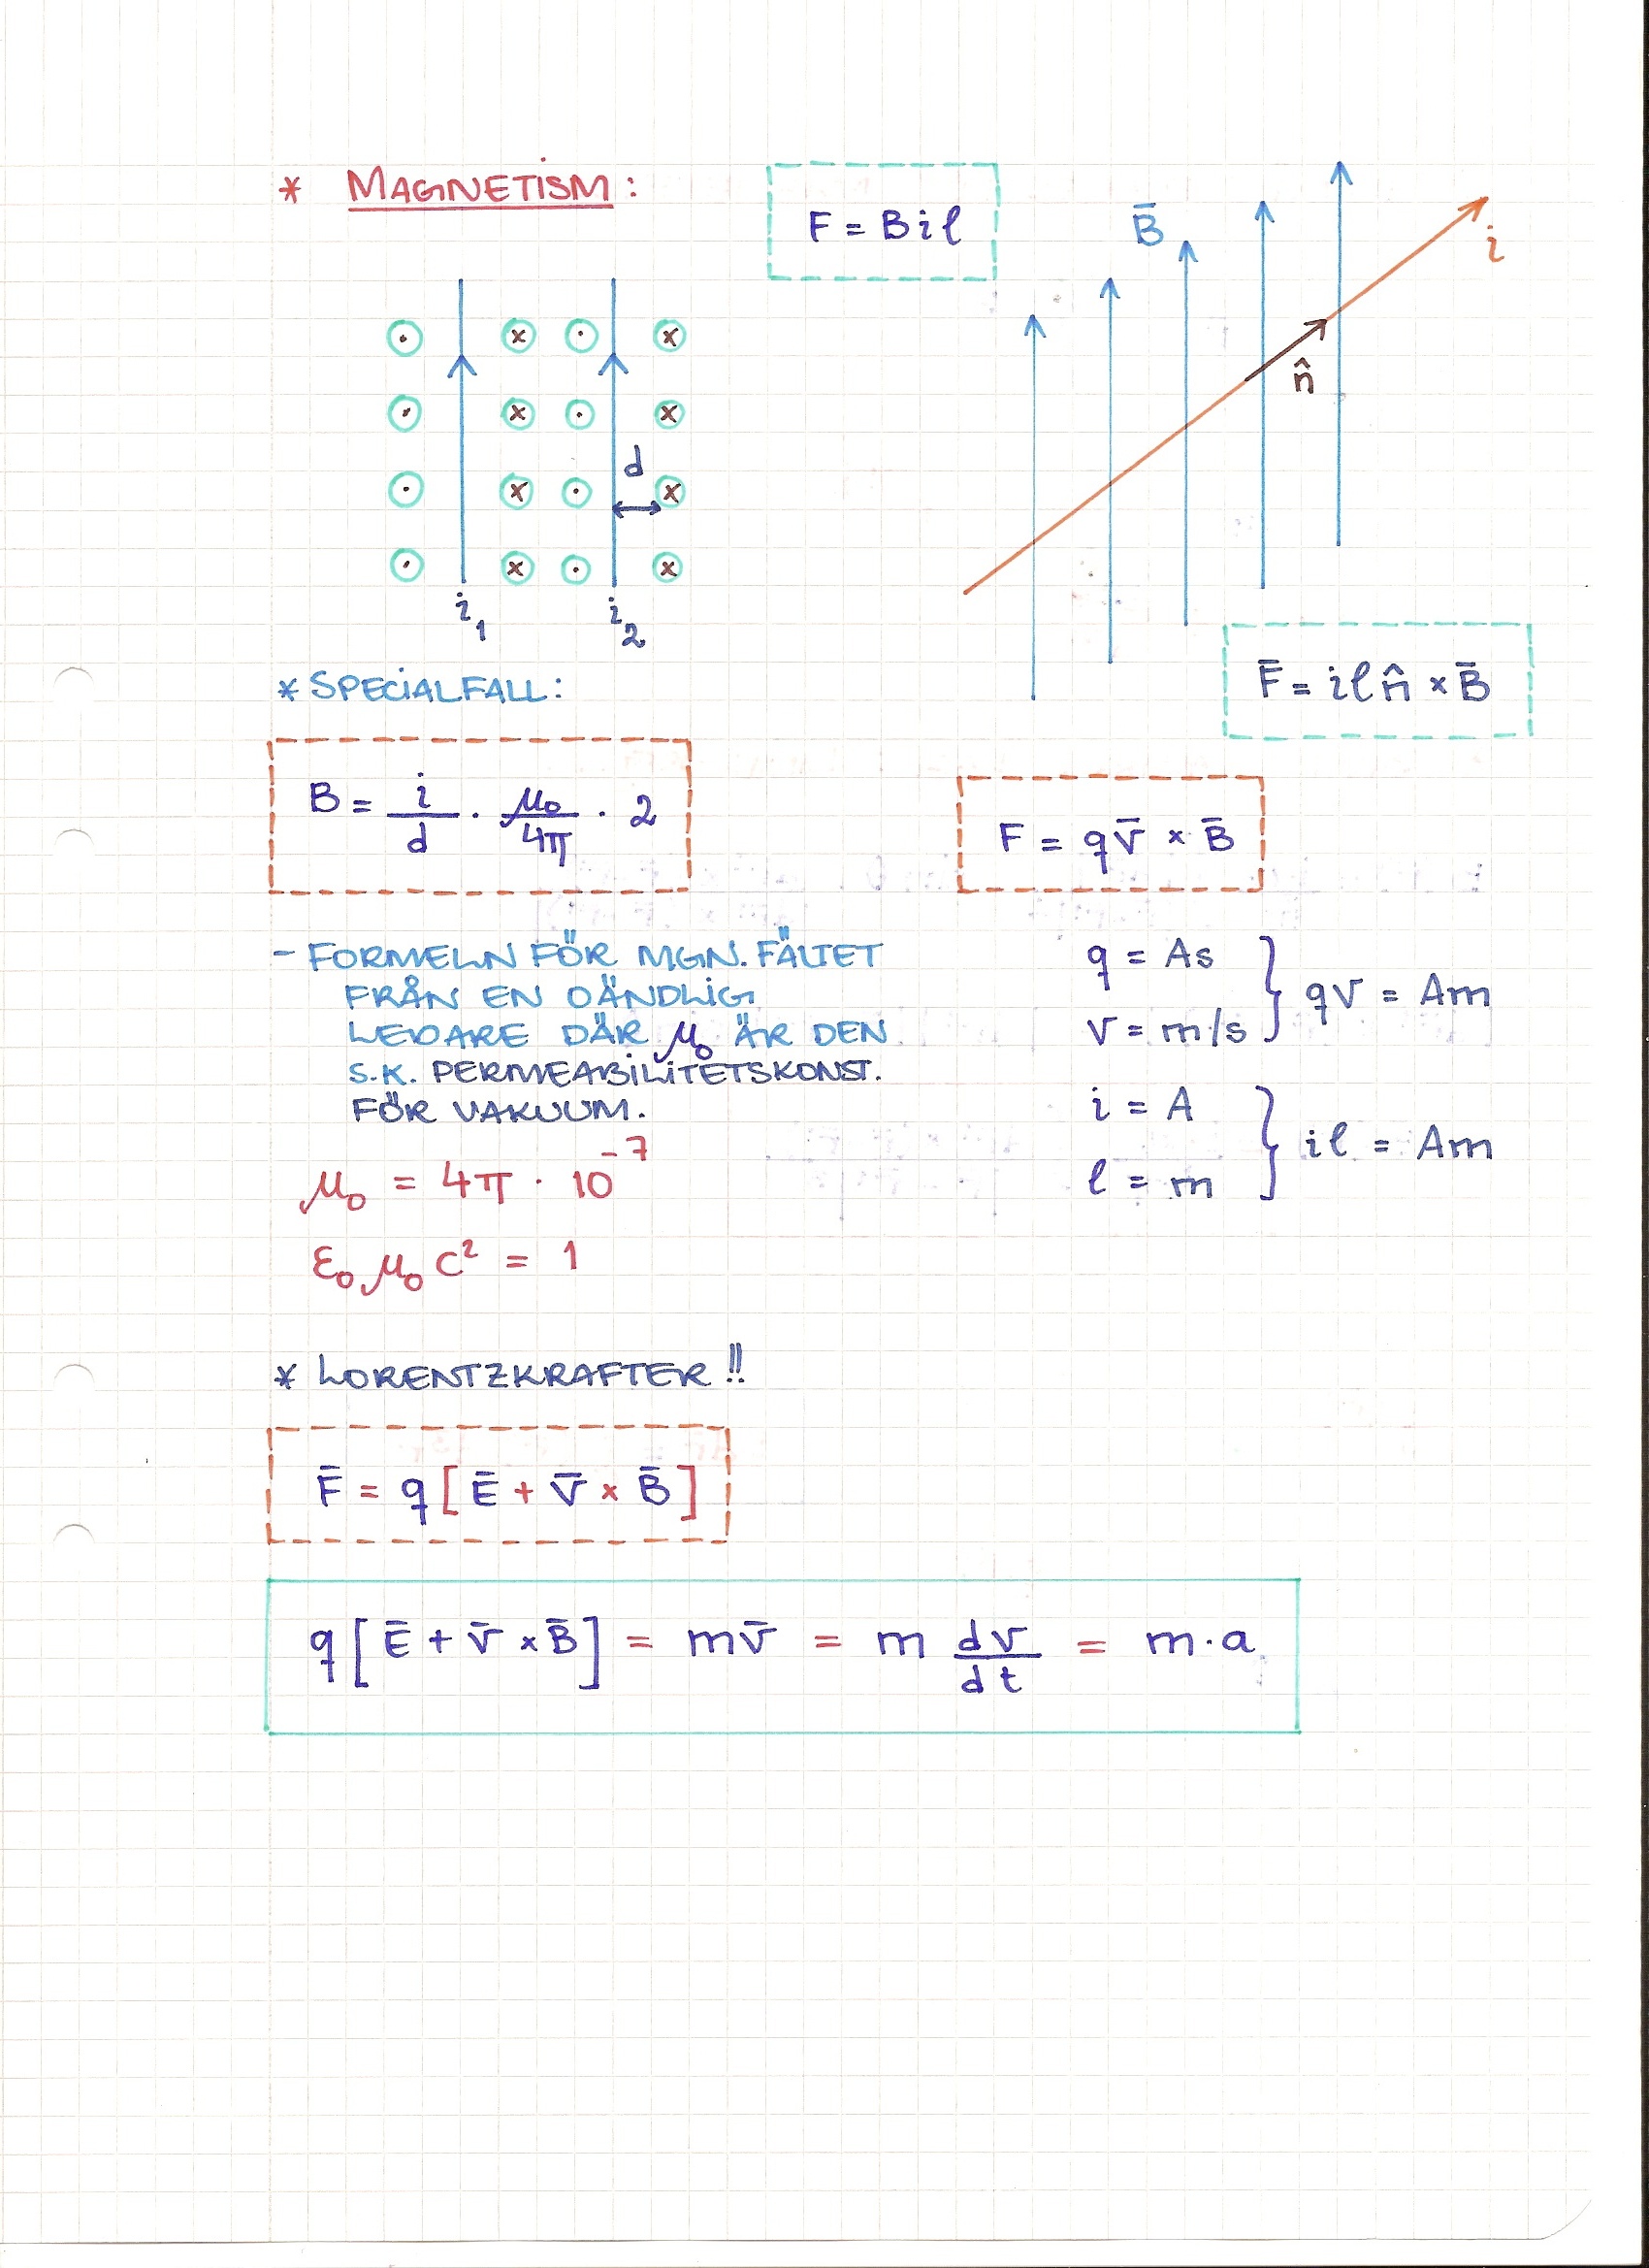 * MAGNETISM:
F = Bil
B̄
i
n̂
d
i₁ i₂
F̄ = il n̂ × B̄
* SPECIALFALL:
B = i/d · μ₀/4π · 2
F = qv̄ × B̄
- FORMELN FÖR MGN. FÄLTET
FRÅN EN OÄNDLIG
LEDARE DÄR μ₀ ÄR DEN
S.K. PERMEABILITETSKONST.
FÖR VAKUUM.
μ₀ = 4π · 10⁻⁷
ε₀ μ₀ c² = 1
q = As
v = m/s
} qv = Am
i = A
l = m
} il = Am
* LORENTZKRAFTER!!
F̄ = q [ Ē + v̄ × B̄ ]
q [ Ē + v̄ × B̄ ] = mv̄ = m dv/dt = m · a